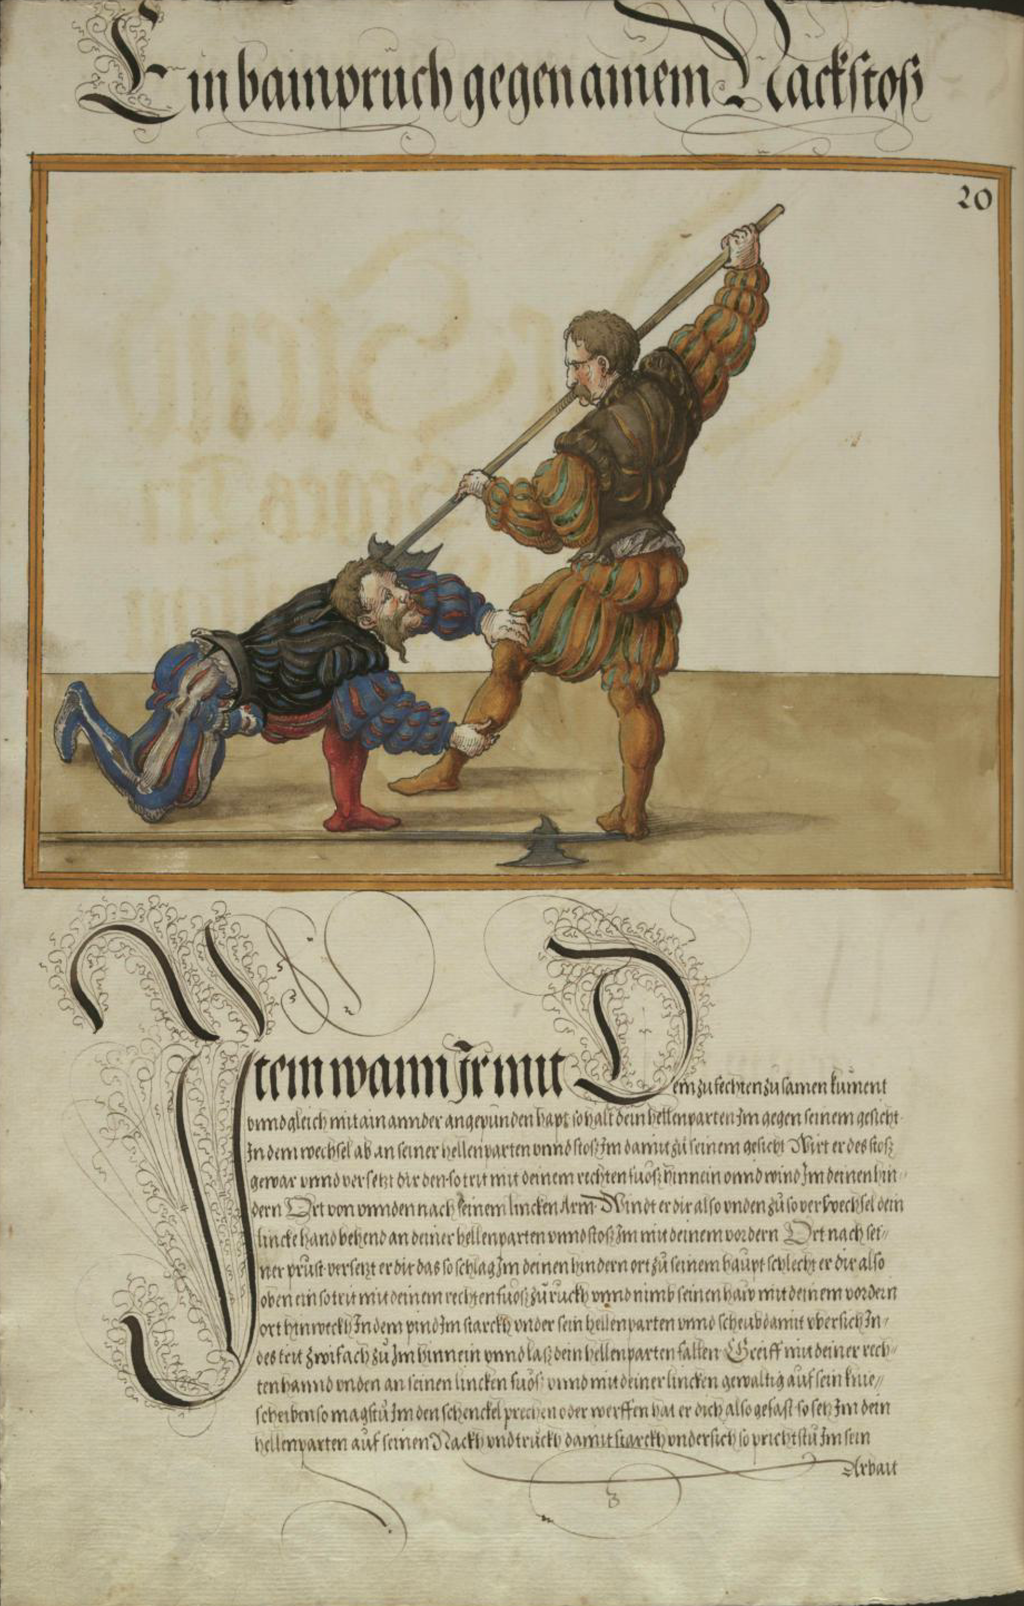 Ein bainpruch gegen ainem Nackstoß
20
Item wann Ir mit Dem zufechten zusamen kument
vnnd gleich mit ainannder angepunden hapt so halt dein hellenparten Im gegen seinem gesicht
In dem wechsel ab an seiner hellenparten vnnd stoß Im damit zu seinem gesicht Wirt er des stoß
gewar vnnd versetzt dir den so trit mit deinem rechten fuoß hinnein vnnd wind Im deinen hin-
dern Ort von vnnden nach seinem lincken Arm Windt er dir also vnden zu so verwechsel dein
lincke hand behend an deiner hellenparten vnnd stoß Im mit deinem vordern Ort nach sei-
ner prust versetzt er dir das so schlag Im deinen hindern ort zu seinem haupt schlecht er dir also
oben ein so trit mit deinem rechten fuoß zu ruckh vnnd nimb seinen haw mit deinem vordern
ort hinweckh In dem pind Im starckh vnder sein hellenparten vnnd scheub damit vbersich In-
des trit zwifach zu Im hinnein vnnd laß dein hellenparten fallen Greiff mit deiner rech-
ten hannd vnden an seinen lincken fuoß vnnd mit deiner lincken gewaltig auf sein knie-
scheiben so magstu Im den schenckel prechen oder werffen hat er dich also gefast so setz Im dein
hellenparten auf seinen Nackh vnd truckh damit starckh vndersich so prichstu Im sein
Arbait